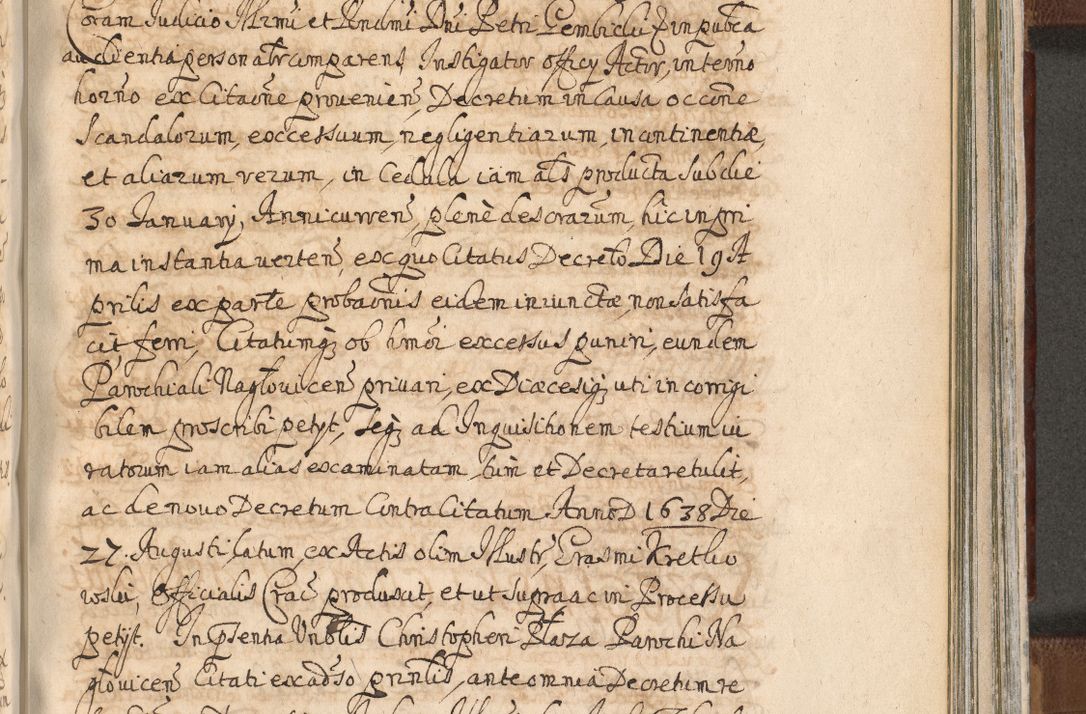 Coram Judicio Illrmi et Rndmi Dni Petri Gembicki Ep in pubca
audientia personalr comparens Instigator officij Actor, in termo
horno ex Citaone provenien, Decretum in Causa occone
Scandalorum, excessuum, negligentiarum, incontinentiæ,
et aliarum rerum, in Cedula iam als producta sub die
30 Januarij, Anni curren, plenè descrarum, hic in pri
ma instantia verten, ex quo Citatus Decreto Die 19 A
prilis ex parte probaonis eidem iniunctæ, non satisfa
cit feri, Citatumq ob hmoi excessus puniri, eundem
Parochiali Naglovicen privari, ex Diœcesiq uti incorrigi
bilem proscribi petyt, seq ad Inquisitionem testium iu
ratorum iam alias examinatam, tum et Decreta retulit,
ac de novo Decretum Contra Citatum Anno D 1638 Die
27. Augusti latum, ex Actis olim Illustr, Erasmi Kretko
wski, Officialis Crac produxit, et ut supra ac in Processu
petyt. In psentia Vnblis Christopheri Płaza Parochi Na
glovicen Citati ex adso prinlis, ante omnia Decretum re